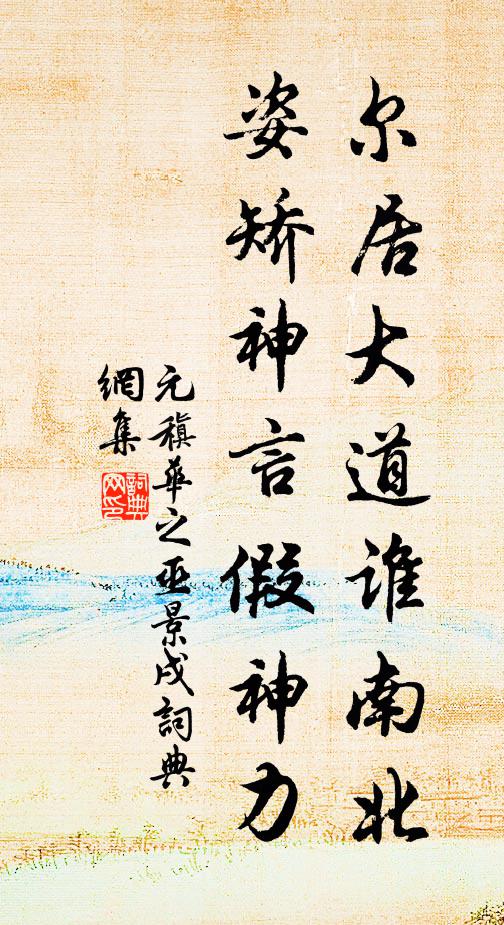 尔居大道谁南北
姿矫神言假神力
元稹华之巫景戌詞典
網集
詞典
网印